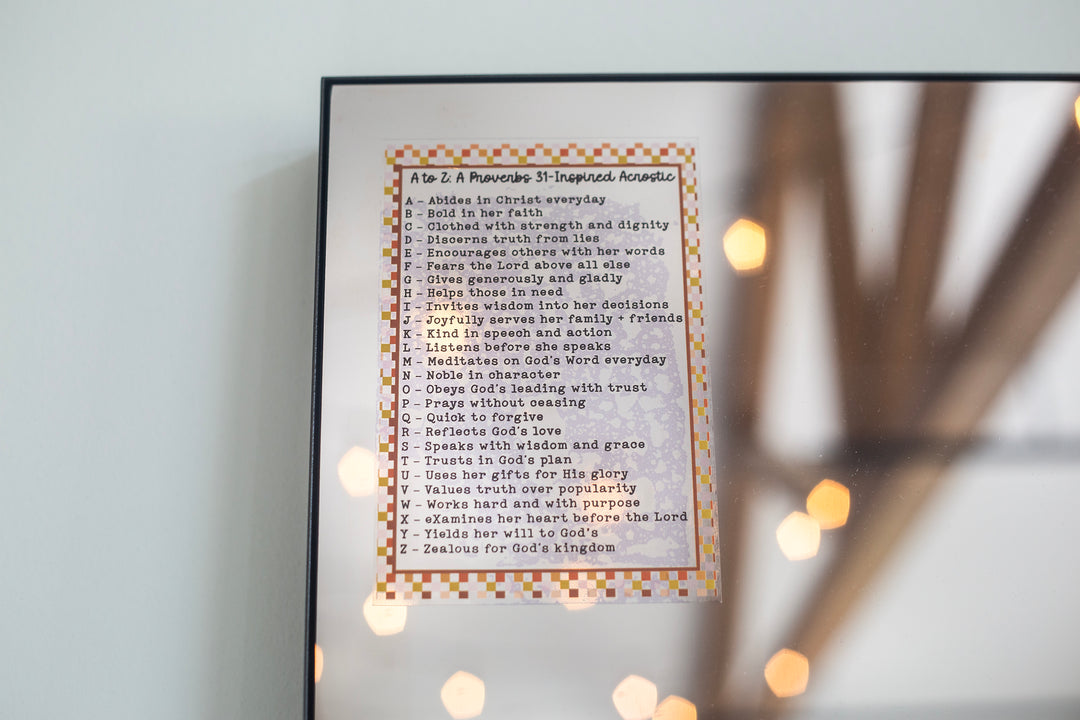 A to Z: A Proverbs 31-Inspired Acrostic
A - Abides in Christ everyday
B - Bold in her faith
C - Clothed with strength and dignity
D - Discerns truth from lies
E - Encourages others with her words
F - Fears the Lord above all else
G - Gives generously and gladly
H - Helps those in need
I - Invites wisdom into her decisions
J - Joyfully serves her family + friends
K - Kind in speech and action
L - Listens before she speaks
M - Meditates on God's Word everyday
N - Noble in character
O - Obeys God's leading with trust
P - Prays without ceasing
Q - Quick to forgive
R - Reflects God's love
S - Speaks with wisdom and grace
T - Trusts in God's plan
U - Uses her gifts for His glory
V - Values truth over popularity
W - Works hard and with purpose
X - eXamines her heart before the Lord
Y - Yields her will to God's
Z - Zealous for God's kingdom